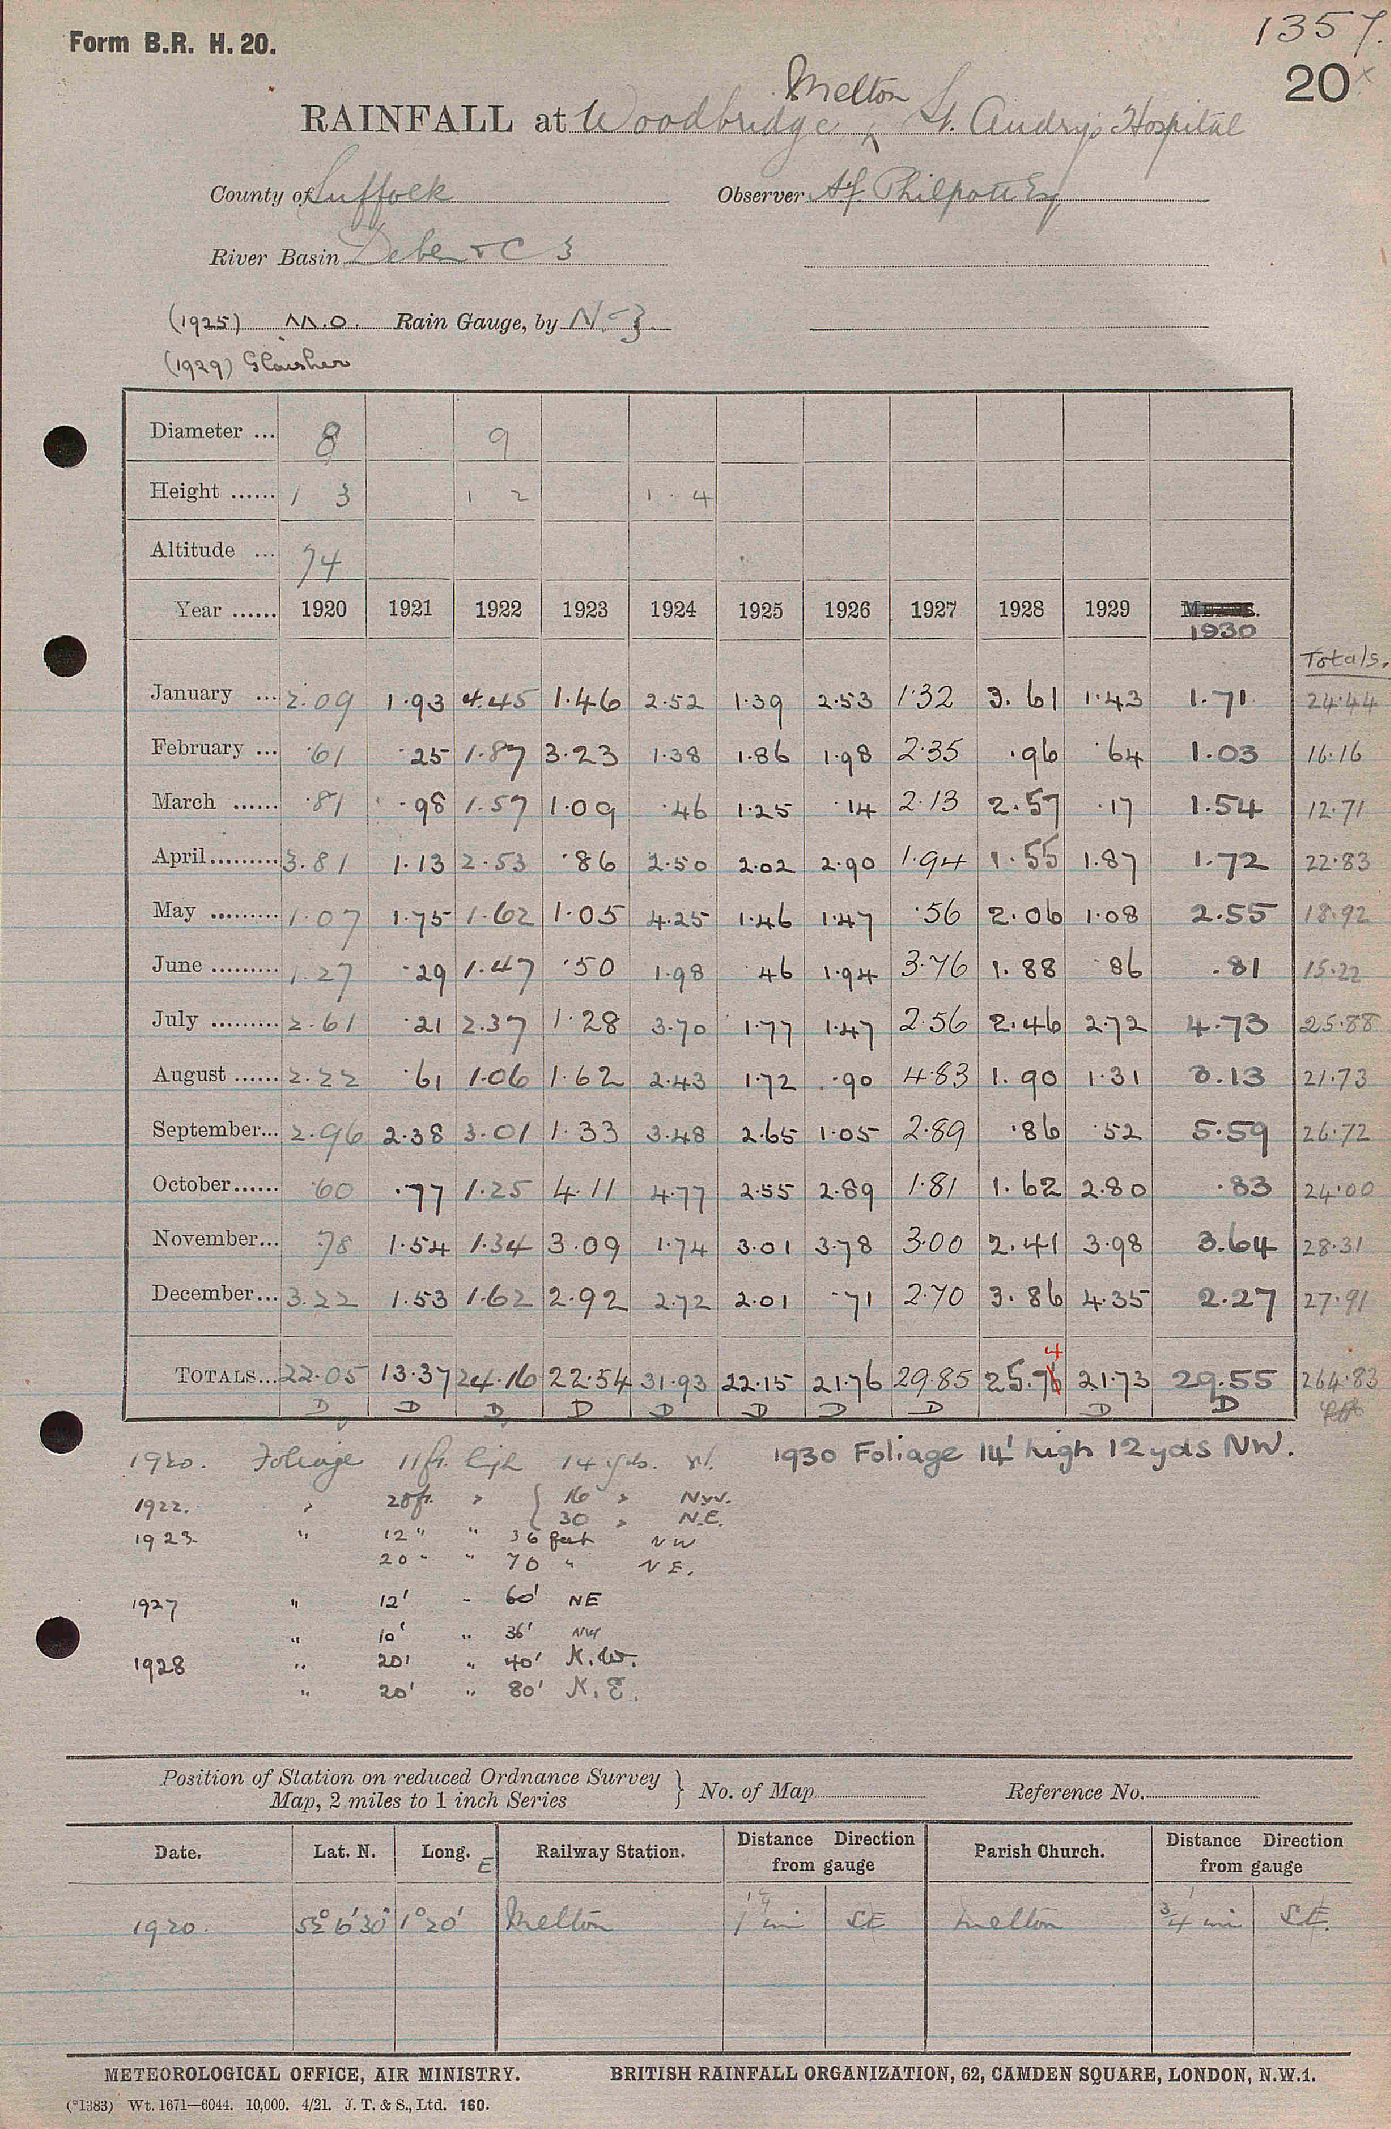 1357.
Form B.R. H. 20.
20 x
Melton
RAINFALL at Woodbridge ^ St. Audry's Hospital
County of Suffolk Observer A.J. Philpott Esq
River Basin Deben & C 3
(1925) M.O. Rain Gauge, by N. & Z.
(1929) Glaisher
Diameter ... 8 9
Height ...... 1 3 1 2 1 . 4
Altitude ... 74
Year ...... 1920 1921 1922 1923 1924 1925 1926 1927 1928 1929 1930
Totals.
January ... 2.09 1.93 4.45 1.46 2.52 1.39 2.53 1.32 3.61 1.43 1.71 24.44
February ... .61 .25 1.87 3.23 1.38 1.86 1.98 2.35 .96 .64 1.03 16.16
March ...... .81 .98 1.57 1.09 .46 1.25 .14 2.13 2.57 .17 1.54 12.71
April......... 3.81 1.13 2.53 .86 2.50 2.02 2.90 1.94 1.55 1.87 1.72 22.83
May ......... 1.07 1.75 1.62 1.05 4.25 1.46 1.47 .56 2.06 1.08 2.55 18.92
June ......... 1.27 .29 1.47 .50 1.98 .46 1.94 3.76 1.88 .86 .81 15.22
July ......... 2.61 .21 2.37 1.28 3.70 1.77 1.47 2.56 2.46 2.72 4.73 25.88
August ...... 2.22 .61 1.06 1.62 2.43 1.72 .90 4.83 1.90 1.31 3.13 21.73
September... 2.96 2.38 3.01 1.33 3.48 2.65 1.05 2.89 .86 .52 5.59 26.72
October...... .60 .77 1.25 4.11 4.77 2.55 2.89 1.81 1.62 2.80 .83 24.00
November... .78 1.54 1.34 3.09 1.74 3.01 3.78 3.00 2.41 3.98 3.64 28.31
December... 3.22 1.53 1.62 2.92 2.72 2.01 .71 2.70 3.86 4.35 2.27 27.91
4
TOTALS... 22.05 13.37 24.16 22.54 31.93 22.15 21.76 29.85 25.76 21.73 29.55 264.83
D D D D D D D D D D
1920. Foliage 11ft. high 14 yds. W. 1930 Foliage 14' high 12 yds NW.
1922. " 28ft. " { 16 " NW.
30 " N.E.
1923 " 12 " " 36 feet NW
20 " " 70 " NE.
1927 " 12' - 60' NE
" 10' " 36' NW
1928 " 20' " 40' N.W.
" 20' " 80' N.E.
Position of Station on reduced Ordnance Survey
Map, 2 miles to 1 inch Series } No. of Map Reference No.
Date. Lat. N. Long. E Railway Station. Distance Direction from gauge Parish Church. Distance Direction from gauge
1920. 52° 6' 30" 1° 20' Melton 1 mi SE Melton 3/4 mi S.E.
METEOROLOGICAL OFFICE, AIR MINISTRY. BRITISH RAINFALL ORGANIZATION, 62, CAMDEN SQUARE, LONDON, N.W.1.
(*1383) Wt. 1671—6044. 10,000. 4/21. J. T. & S., Ltd. 160.